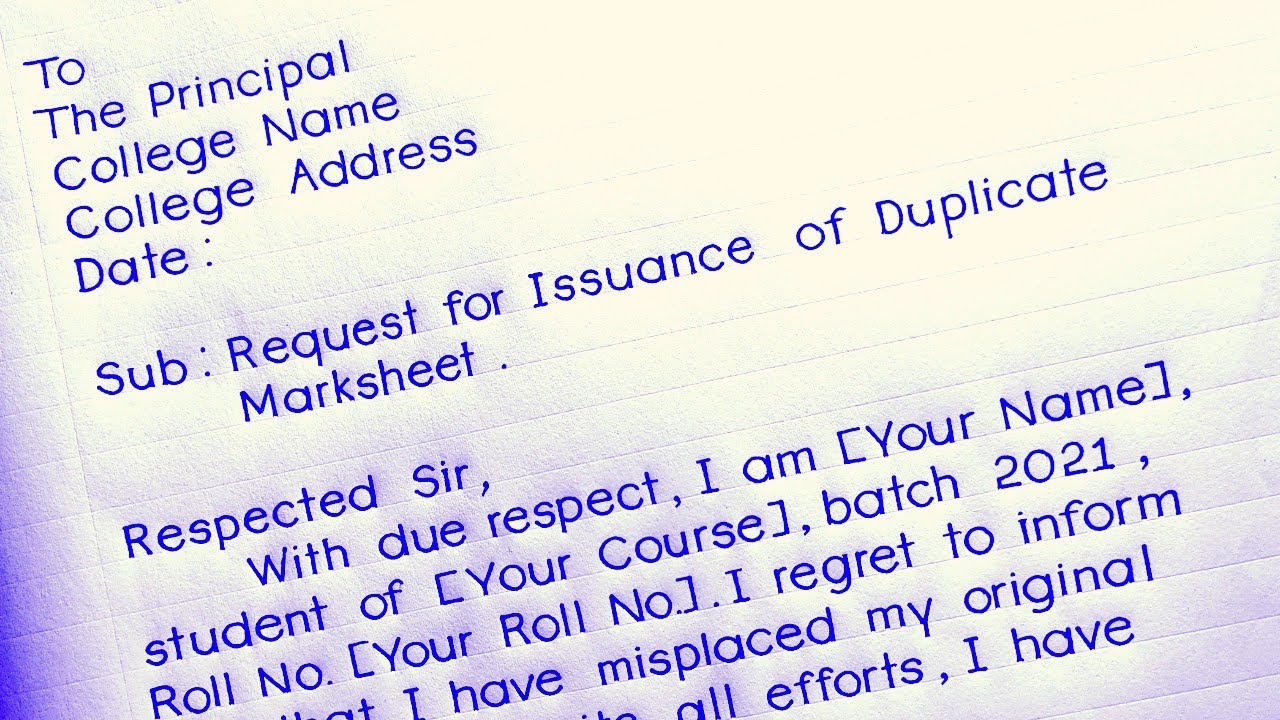 To
The Principal
College Name
College Address
Date :
Sub : Request for Issuance of Duplicate
Marksheet .
Respected Sir,
With due respect, I am [Your Name],
student of [Your Course], batch 2021 ,
Roll No. [Your Roll No.]. I regret to inform
that I have misplaced my original
all efforts , I have